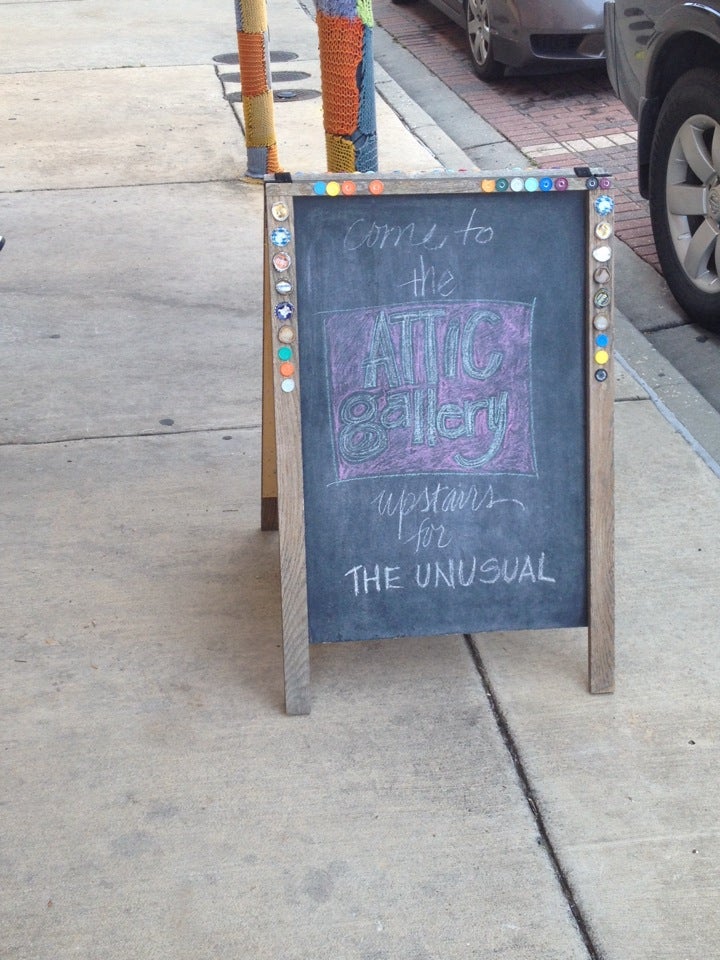 come to
the
ATTIC
gallery
upstairs
for
THE UNUSUAL